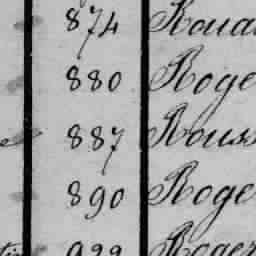 874 Roua
880 Roge
887 Rouss
890 Roge
Roger